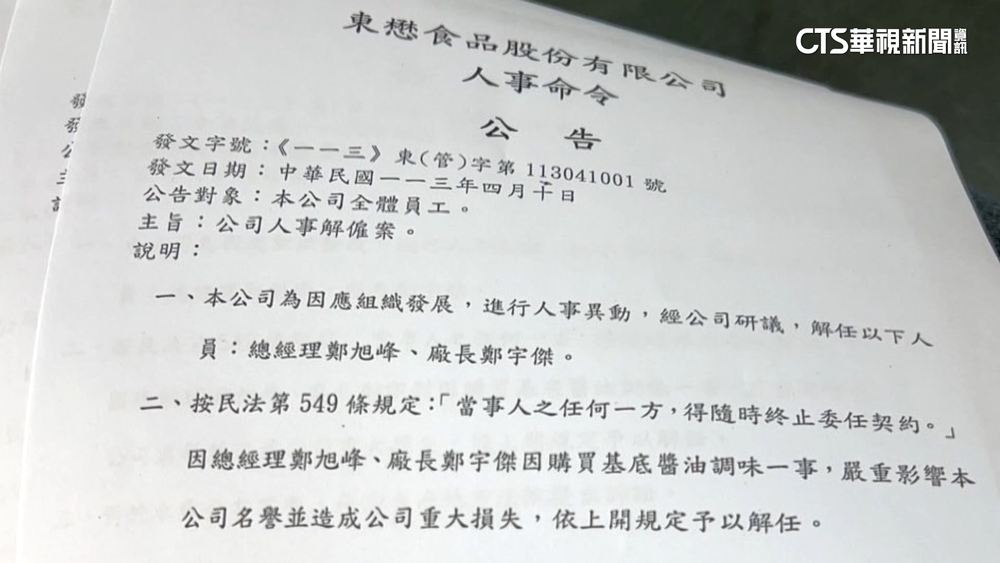 CTS華視新聞資訊
東懋食品股份有限公司
人事命令
公 告
發文字號：《一一三》東(管)字第 113041001 號
發文日期：中華民國一一三年四月十日
公告對象：本公司全體員工。
主旨：公司人事解僱案。
說明：
一、本公司為因應組織發展，進行人事異動，經公司研議，解任以下人
員：總經理鄭旭峰、廠長鄭宇傑。
二、按民法第 549 條規定：「當事人之任何一方，得隨時終止委任契約。」
因總經理鄭旭峰、廠長鄭宇傑因購買基底醬油調味一事，嚴重影響本
公司名譽並造成公司重大損失，依上開規定予以解任。